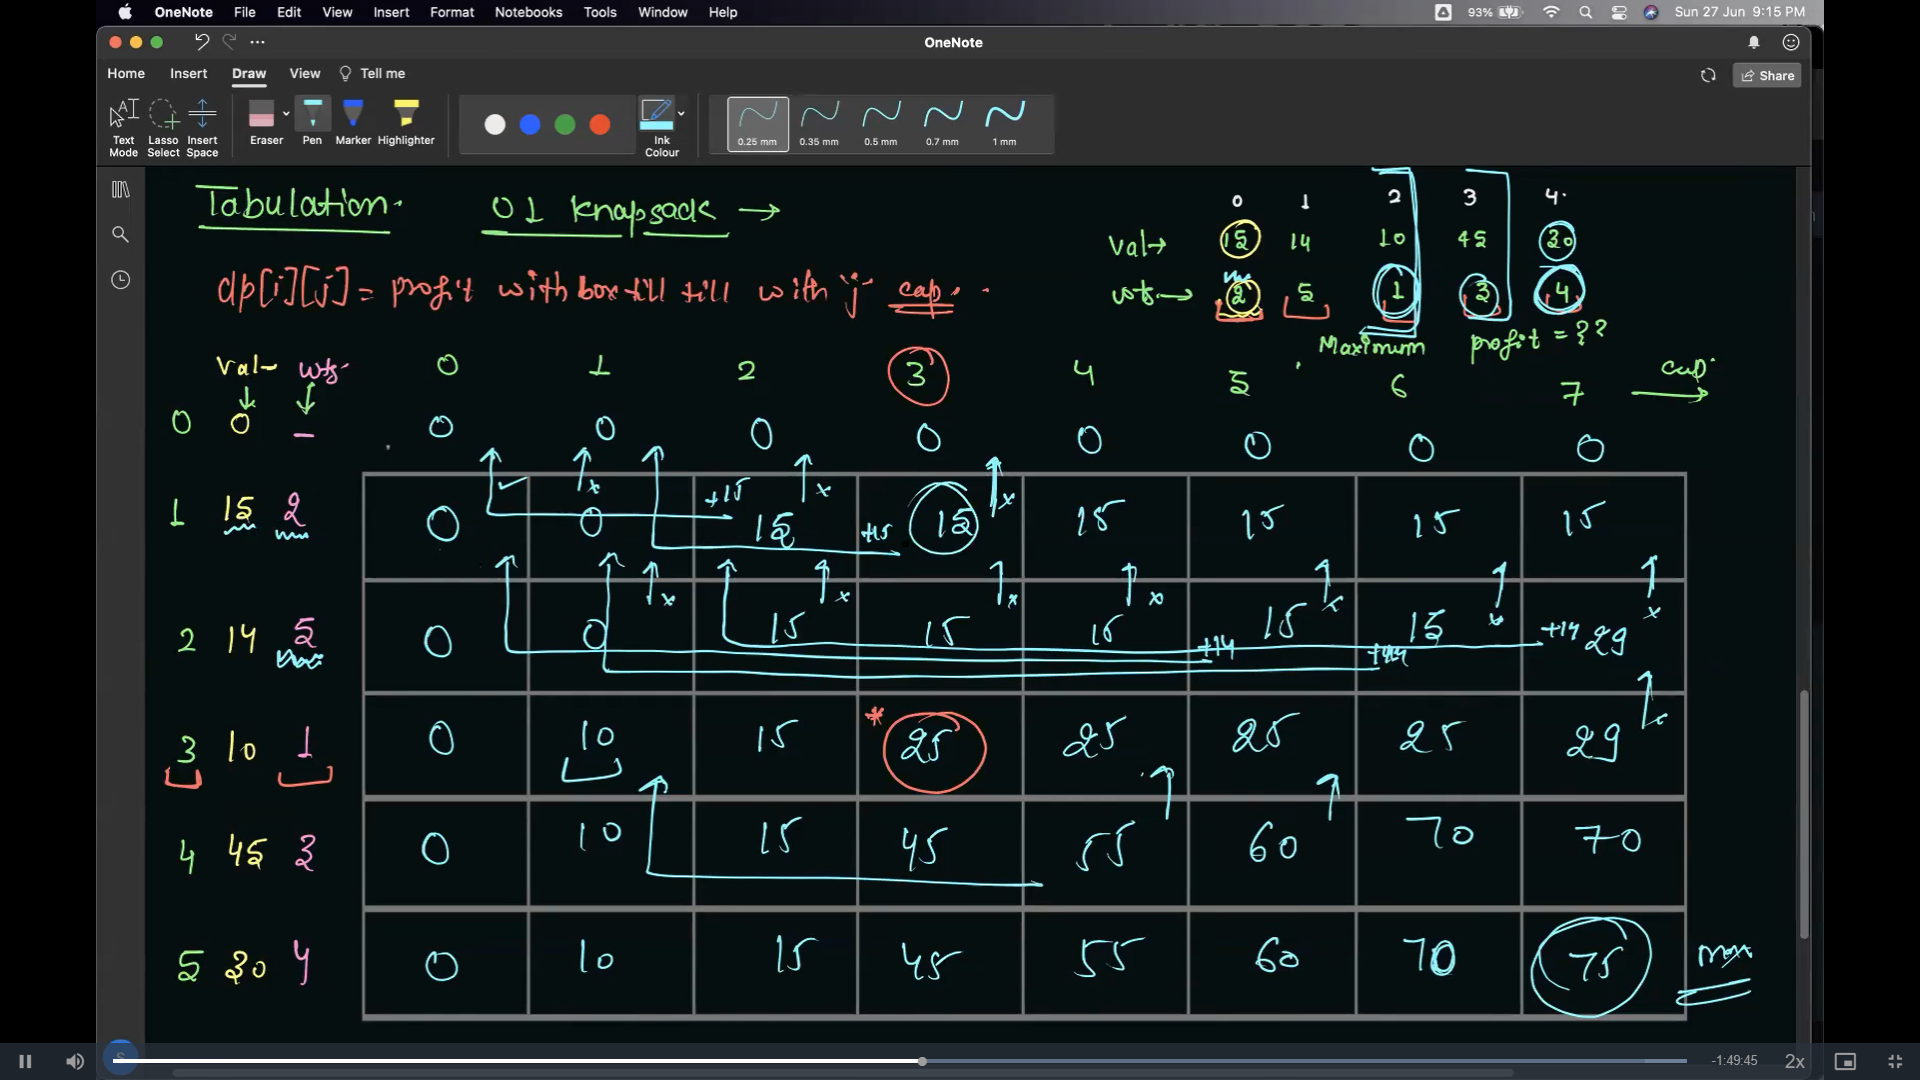 OneNote File Edit View Insert Format Notebooks Tools Window Help 93% Sun 27 Jun 9:15 PM
OneNote
Home Insert Draw View Tell me Share
Text Mode Lasso Select Insert Space Eraser Pen Marker Highlighter Ink Colour 0.25 mm 0.35 mm 0.5 mm 0.7 mm 1 mm
Tabulation. 01 Knapsack →
0 1 2 3 4.
val→ 15 14 10 45 30
wts.→ 2 5 1 3 4
dp[i][j] = profit with box till till with 'j' cap.
Maximum profit = ??
val wts. 0 1 2 3 4 5 6 7 cap.
0 0 – 0 0 0 0 0 0 0 0
1 15 2 0 0 +15 x 15 +15 15 x 15 15 15 15
2 14 5 0 0 15 15 15 +14 15 +14 15 +14 29
3 10 1 0 10 15 * 25 25 25 25 29
4 45 3 0 10 15 45 55 60 70 70
5 30 4 0 10 15 45 55 60 70 75 max
-1:49:45 2x